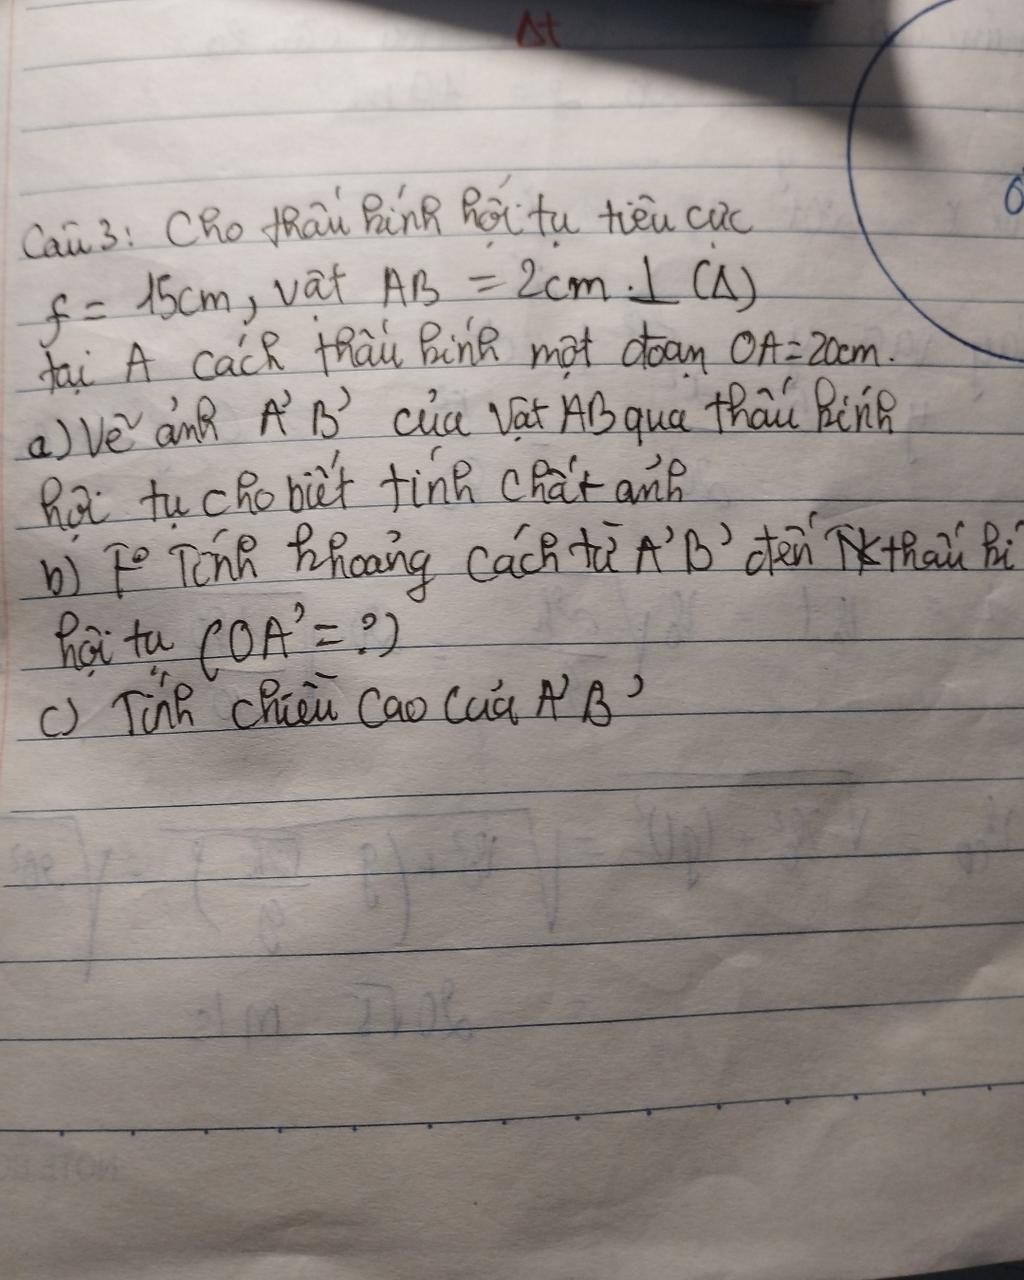 Δt
O
Câu 3: Cho thấu kính hội tụ tiêu cực
f = 15cm, vật AB = 2cm ⊥ (Δ)
tại A cách thấu kính một đoạn OA = 20cm.
a) Vẽ ảnh A'B' của vật AB qua thấu kính
hội tụ cho biết tính chất ảnh
b) Tính khoảng cách từ A'B' đến thấu kí
hội tụ (OA' = ?)
c) Tính chiều cao của A'B'